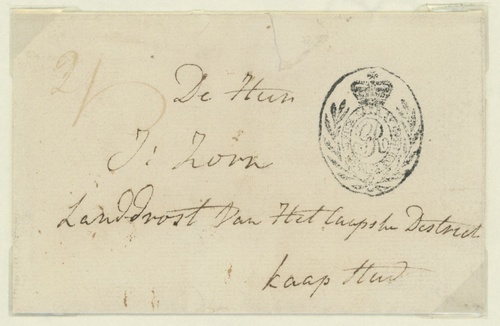 2/
De Heer
J: Zorn
Landdrost Van Het Caapshe District
Kaap Stad
GR